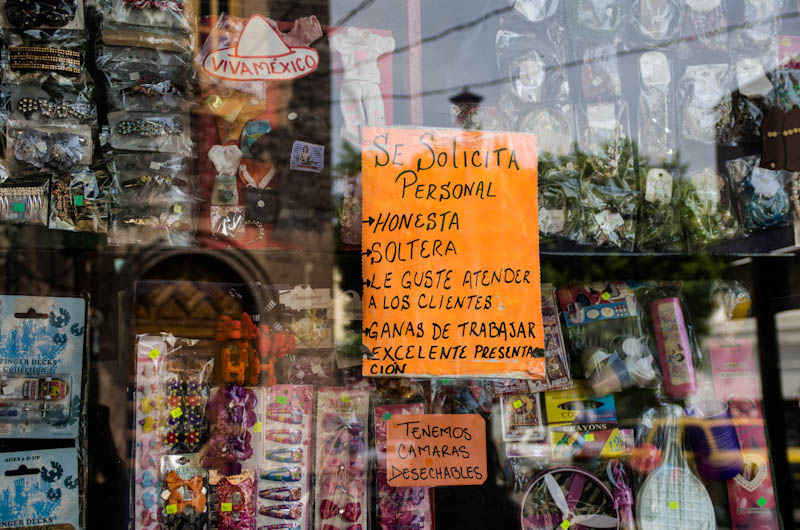 VIVAMÉXICO
SE SOLICITA
PERSONAL
→HONESTA
→SOLTERA
→LE GUSTE ATENDER
A LOS CLIENTES
→GANAS DE TRABAJAR
→EXCELENTE PRESENTA
CIÓN
TENEMOS
CAMARAS
DESECHABLES
FINGER DECKS
Collection
AGES 4 & UP
CRAYONS
FINGER DECKS